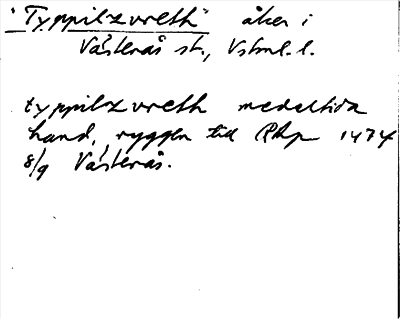 "Typpilz vreth" åker i
Västerås st., Vstml. l.
typpilz vreth medeltida
hand, ryggen till Php 1474
8/9 Västerås.